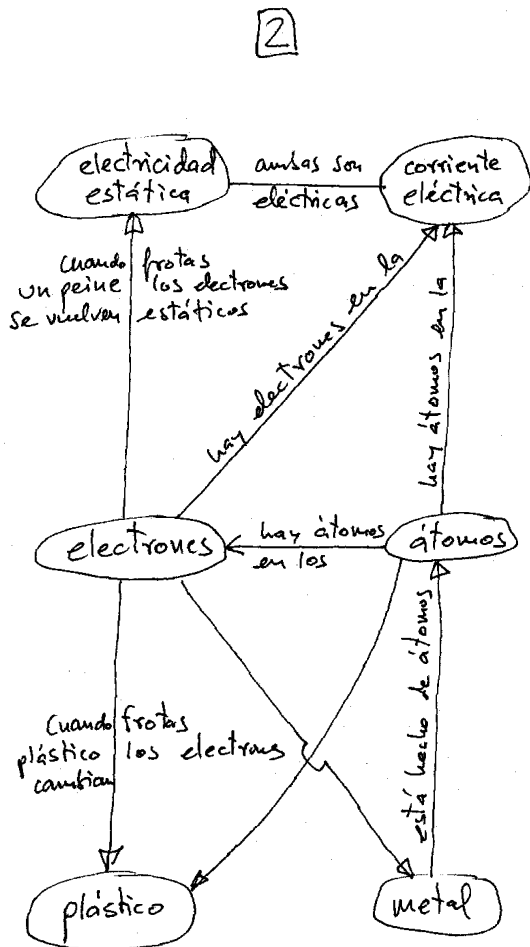 2
electricidad
estática
ambas son
eléctricas
corriente
eléctrica
cuando frotas
un peine los electrones
se vuelven estáticos
hay electrones en la
hay átomos en la
electrones
hay átomos
en los
átomos
cuando frotas
plástico los electrons
cambian
está hecho de átomos
plástico
metal